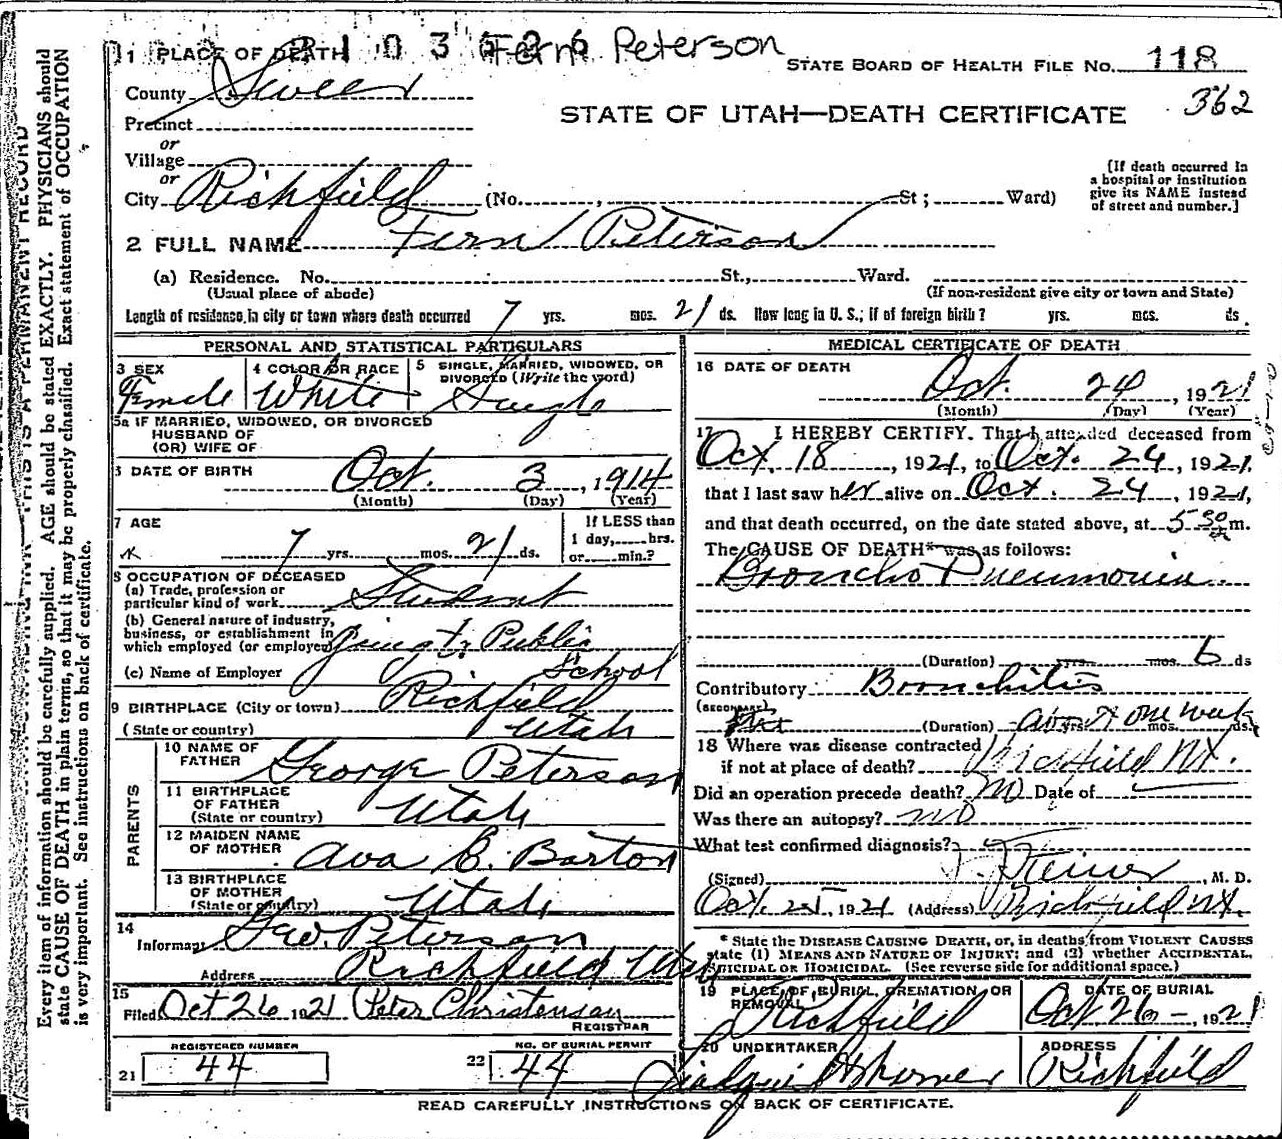 1 PLACE OF DEATH 2103626 Fern Peterson
STATE BOARD OF HEALTH FILE NO. 118
County Sevier
362
STATE OF UTAH—DEATH CERTIFICATE
Precinct
or
Village
or
City Richfield (No. , St; Ward)
[If death occurred in
a hospital or institution
give its NAME instead
of street and number.]
2 FULL NAME Fern Peterson
(a) Residence. No. St., Ward.
(Usual place of abode) (If non-resident give city or town and State)
Length of residence in city or town where death occurred 7 yrs. mos. 21 ds. How long in U. S.; if of foreign birth? yrs. mos. ds.
PERSONAL AND STATISTICAL PARTICULARS
3 SEX Female
4 COLOR OR RACE White
5 SINGLE, MARRIED, WIDOWED, OR
DIVORCED (Write the word) Single
5a IF MARRIED, WIDOWED, OR DIVORCED
HUSBAND OF
(OR) WIFE OF
DATE OF BIRTH Oct. 3, 1914
(Month) (Day) (Year)
7 AGE 7 yrs. mos. 21 ds.
If LESS than
1 day, hrs.
or min.?
8 OCCUPATION OF DECEASED
(a) Trade, profession or
particular kind of work Student
(b) General nature of industry,
business, or establishment in
which employed (or employer) Public
School
(c) Name of Employer
9 BIRTHPLACE (City or town) Richfield
(State or country) Utah
PARENTS
10 NAME OF
FATHER George Peterson
11 BIRTHPLACE
OF FATHER
(State or country) Utah
12 MAIDEN NAME
OF MOTHER Ava E. Barton
13 BIRTHPLACE
OF MOTHER
(State or country) Utah
14
Informant Geo. Peterson
Address Richfield Utah
15
Filed Oct 26 1921 Peter Christensen
REGISTRAR
REGISTERED NUMBER
21 44
NO. OF BURIAL PERMIT
22 44
MEDICAL CERTIFICATE OF DEATH
16 DATE OF DEATH
Oct. 24, 1921
(Month) (Day) (Year)
17 I HEREBY CERTIFY. That I attended deceased from
Oct. 18, 1921, to Oct. 24, 1921,
that I last saw her alive on Oct. 24, 1921,
and that death occurred, on the date stated above, at 5 30 m.
The CAUSE OF DEATH* was as follows:
Broncho Pneumonia.
(Duration) yrs. mos. 6 ds
Contributory Bronchitis
(SECONDARY)
(Duration) about one week yrs. mos. ds.
18 Where was disease contracted
if not at place of death? Richfield Ut.
Did an operation precede death? No Date of
Was there an autopsy? no
What test confirmed diagnosis?
(Signed) Steiner, M. D.
Oct. 25, 1921 (Address) Richfield Ut.
* State the DISEASE CAUSING DEATH, or, in deaths from VIOLENT CAUSES
state (1) MEANS AND NATURE OF INJURY; and (2) whether ACCIDENTAL,
SUICIDAL OR HOMICIDAL. (See reverse side for additional space.)
19 PLACE OF BURIAL, CREMATION, OR
REMOVAL Richfield
DATE OF BURIAL
Oct 26 - , 1921
20 UNDERTAKER
ADDRESS
Richfield
READ CAREFULLY INSTRUCTIONS ON BACK OF CERTIFICATE.
Every item of information should be carefully supplied. AGE should be stated EXACTLY. PHYSICIANS should
state CAUSE OF DEATH in plain terms, so that it may be properly classified. Exact statement of OCCUPATION
is very important. See instructions on back of certificate.
THIS IS A PERMANENT RECORD